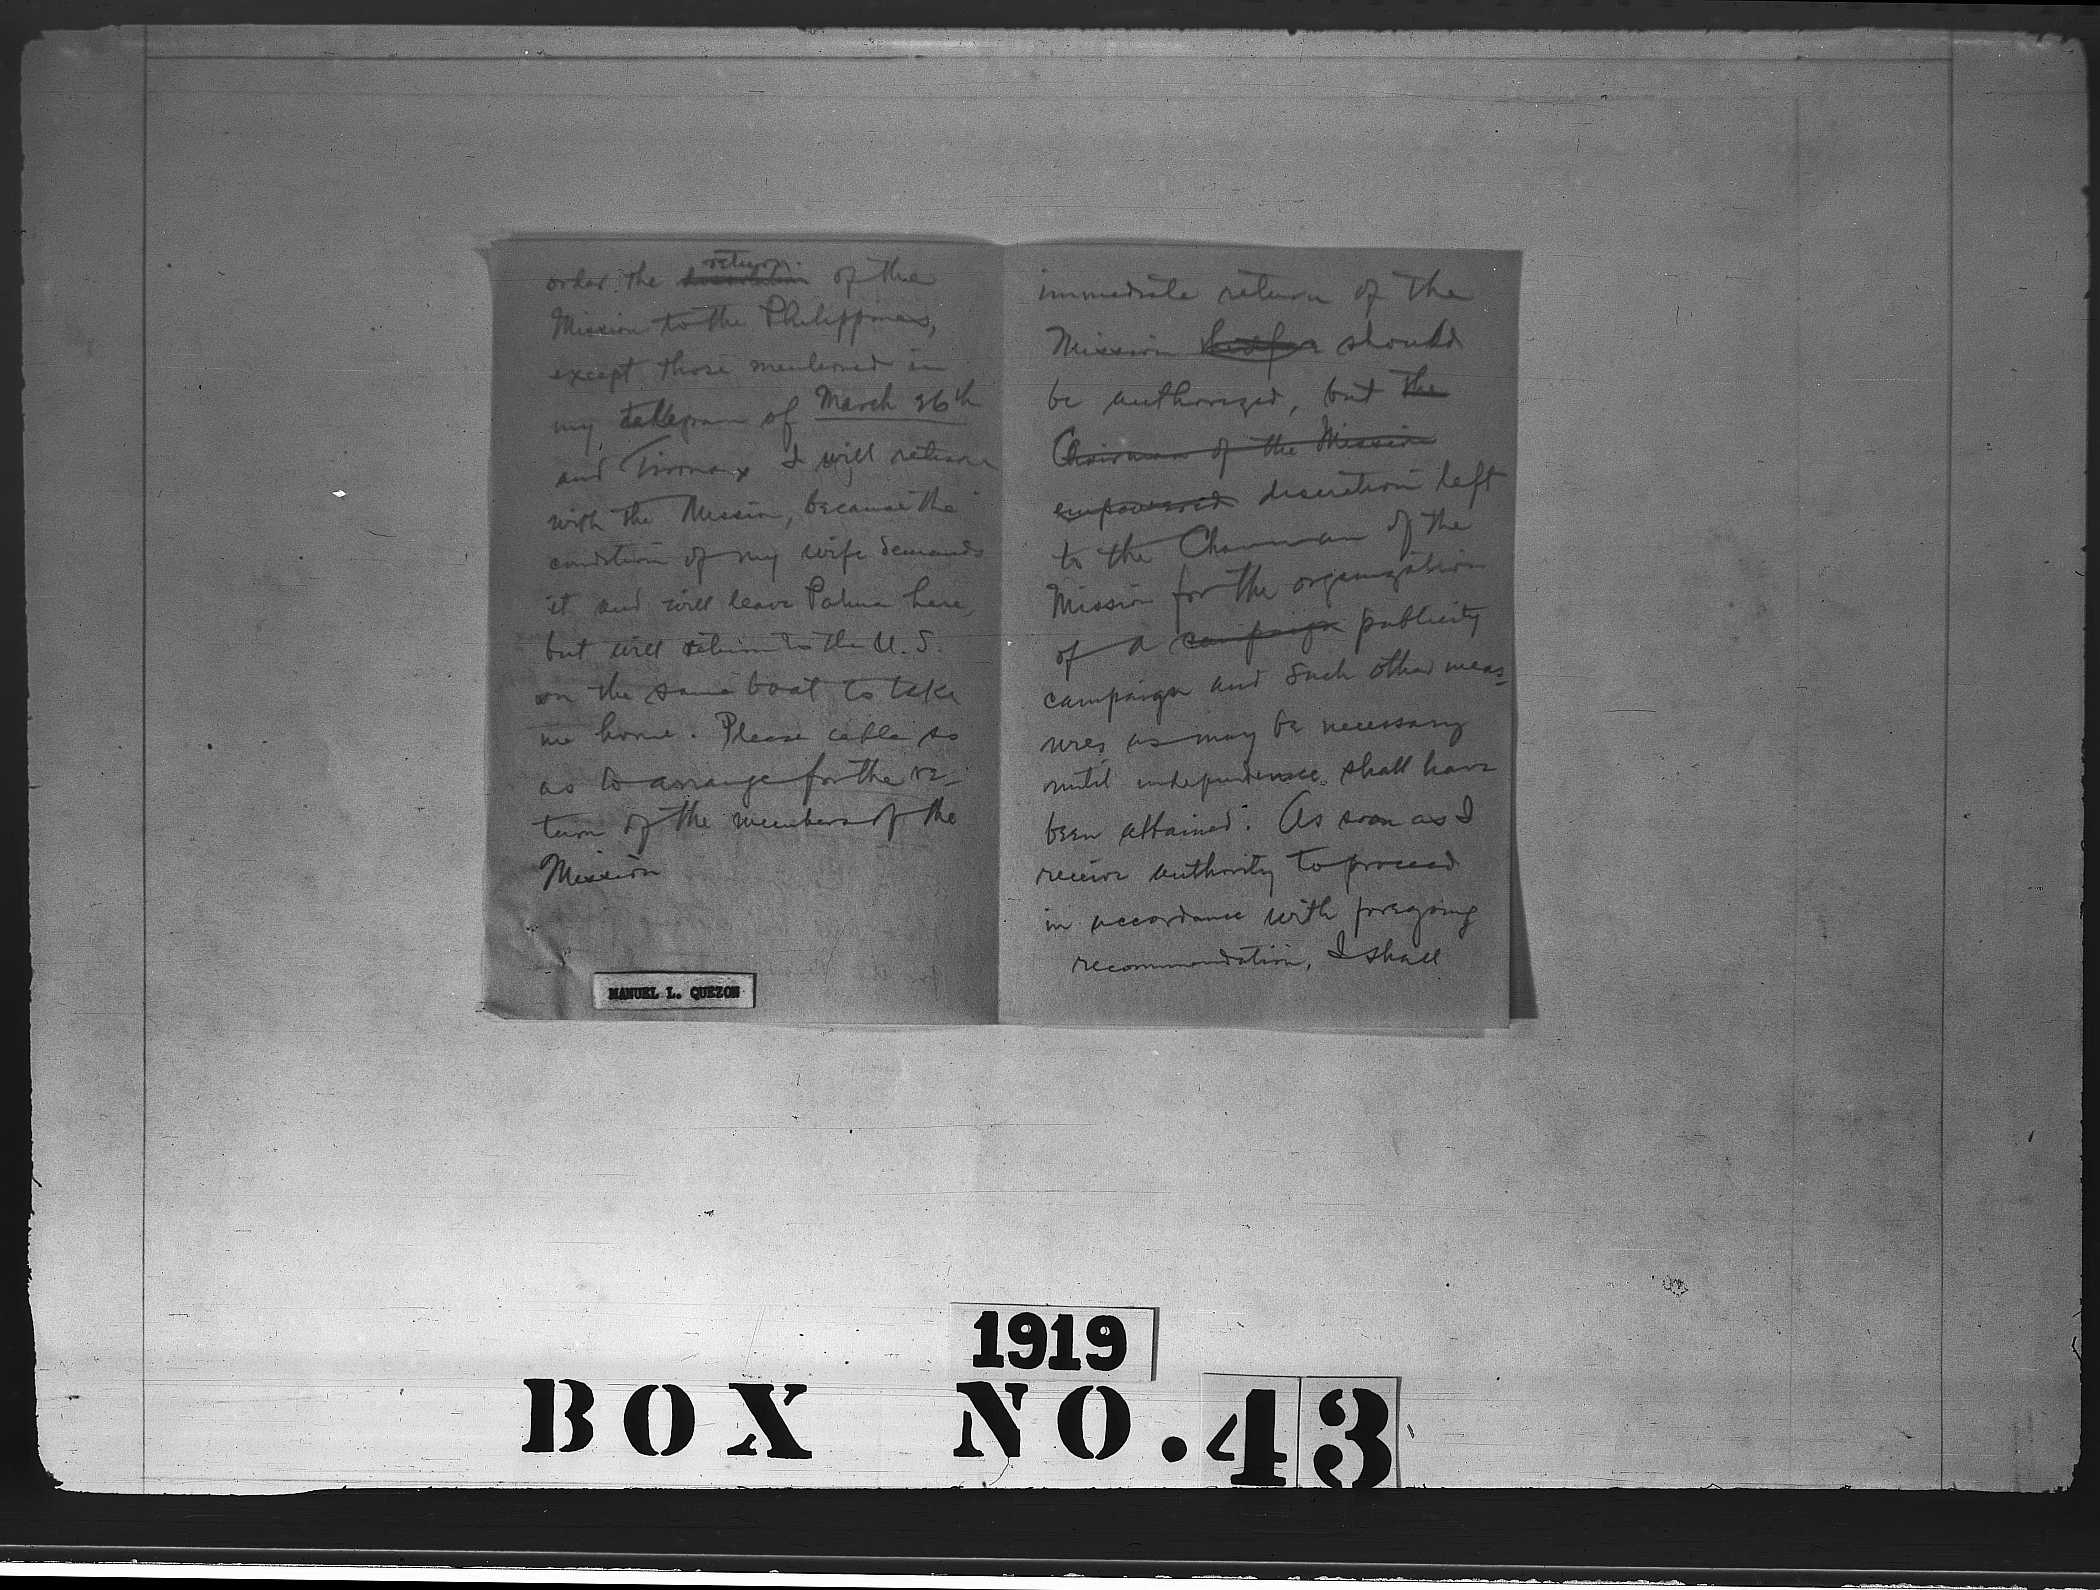 return
order the of the
Mission to the Philippines,
except those mentioned in
my telegram of March 26th
and I will return
with the Mission, because the
condition of my wife demands
it and will leave Palma here,
but will return to the U.S.
on the same boat to take
me home. Please cable so
as to arrange for the re-
turn of the members of the
Mission
MANUEL L. QUEZON
immediate return of the
Mission should
be authorized, but the
Chairman of the Mission
empowered discretion left
to the Chairman of the
Mission for the organization
of a campaign publicity
campaign and such other meas-
ures as may be necessary
until independence shall have
been attained. As soon as I
receive authority to proceed
in accordance with foregoing
recommendation, I shall
1919
BOX NO. 43